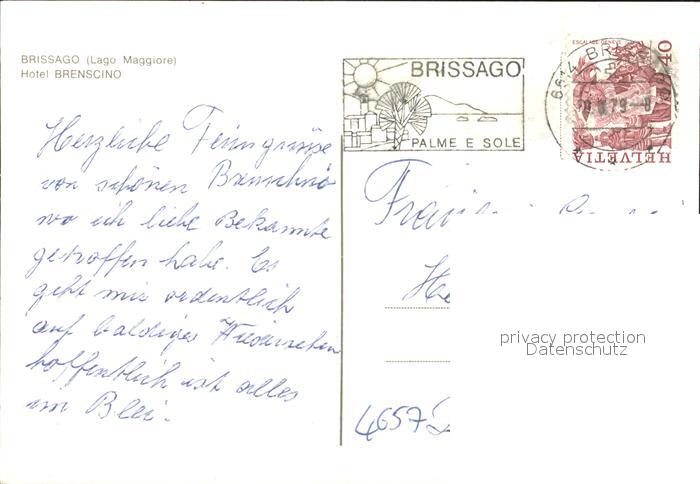 BRISSAGO (Lago Maggiore)
Hotel BRENSCINO
BRISSAGO
PALME E SOLE
ESCALADE GENEVE
40
HELVETIA
Herzliche Feriengrüsse
vom schönen Brenscino
wo ich liebe Bekannte
getroffen habe. Es
geht mir ordentlich
auf baldiges Wiedersehen
hoffentlich ist alles
im Blei.
4657
privacy protection
Datenschutz